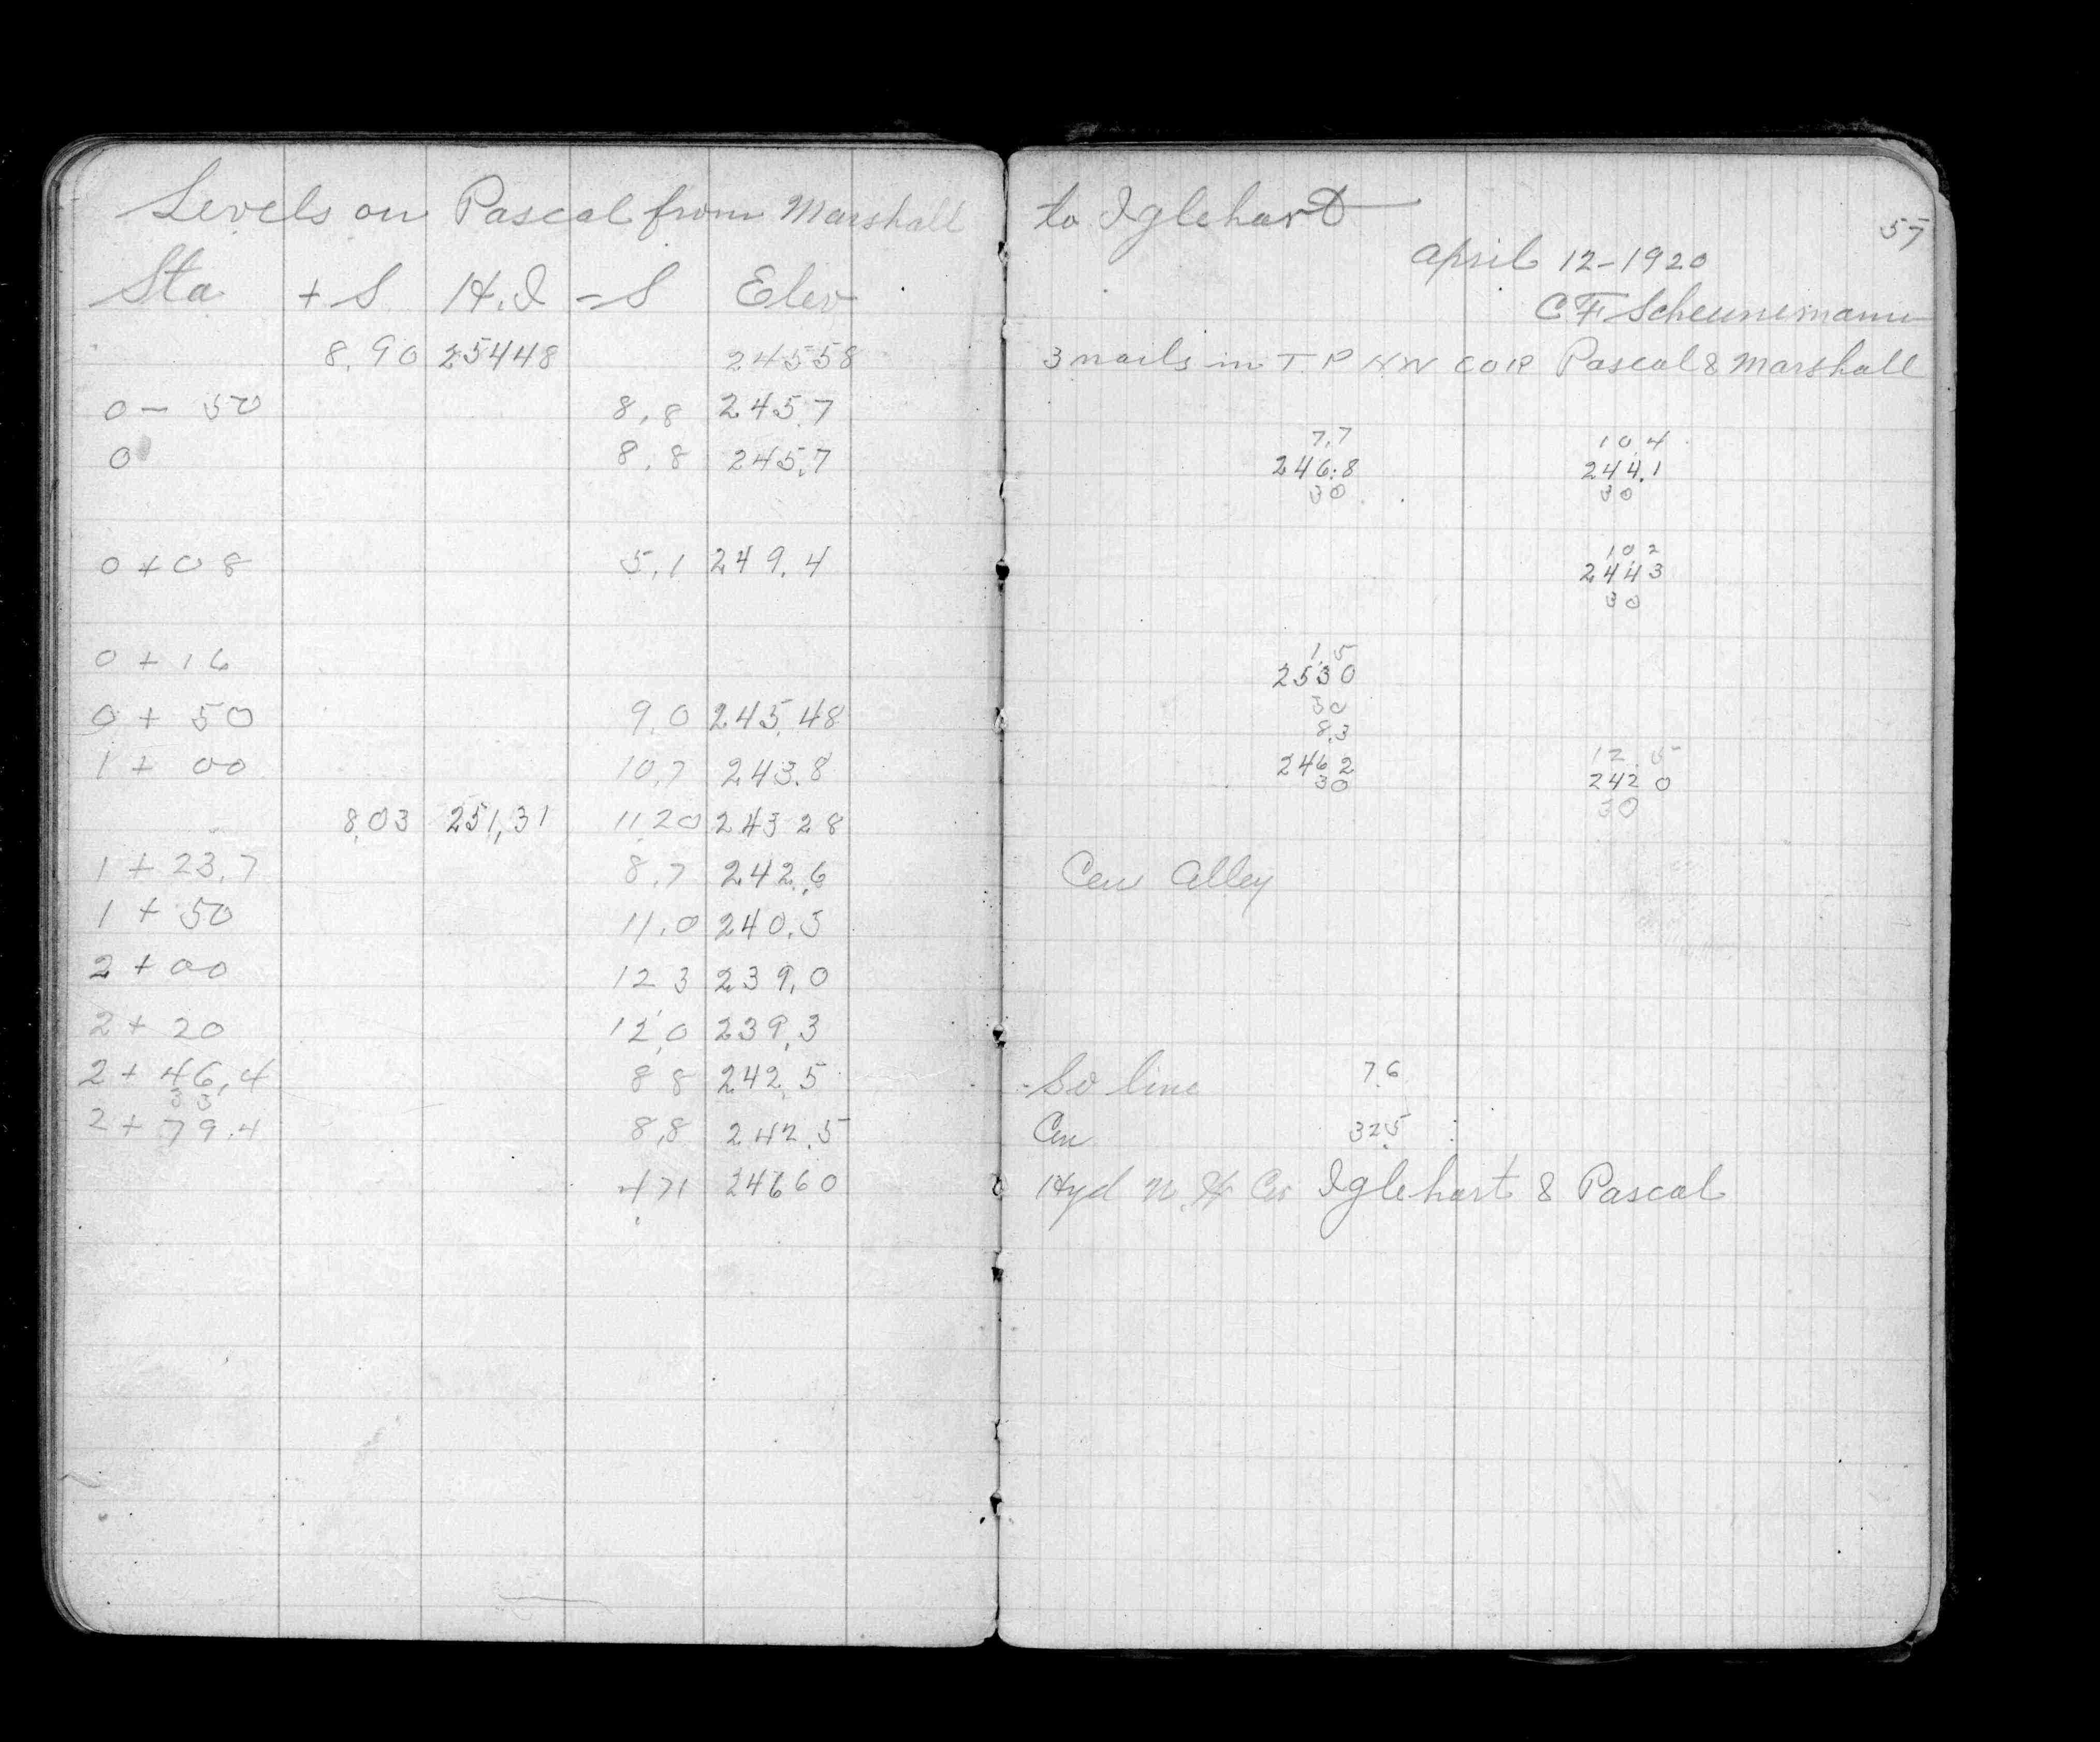 Levels on Pascal from Marshall
Sta + S H.I - S Elev
8.90 25448 24558
0 - 50 8.8 245.7
0 8.8 245.7
0 + 08 5.1 249.4
0 + 16
0 + 50 9.0 245.48
1 + 00 10.7 243.8
8.03 251.31 11.20 243 28
1 + 23.7 8.7 242.6
1 + 50 11.0 240.3
2 + 00 12 3 239.0
2 + 20 12.0 239.3
2 + 46.4 8 8 242.5
33
2 + 79.4 8.8 242.5
471 24660
to Iglehart
57
April 12-1920
C F Scheunemann
3 nails in T. P NW COR Pascal & Marshall
7.7 10.4
246.8 244.1
30 30
10 2
2443
30
1.5
2530
30
8.3
2462 12.5
30 2420
30
Cen Alley
So line 7.6
Cen 32.5
Hyd N.W Cor Iglehart & Pascal